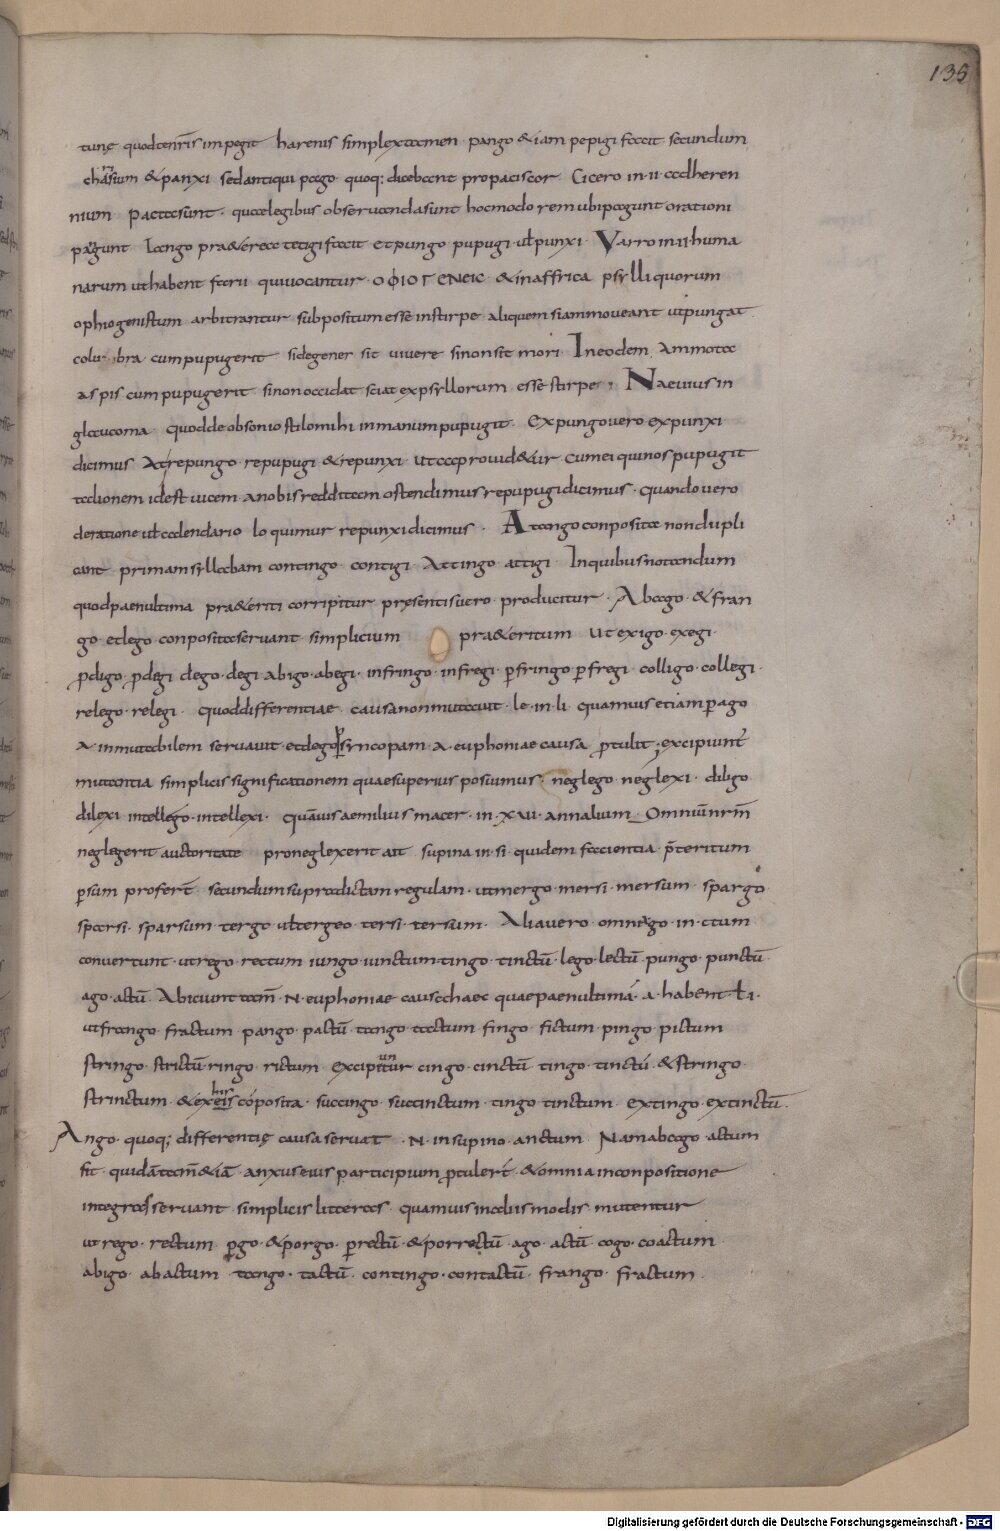 135
tunę quodtenr̄is impegit harenis simplex tamen · pango & iam pepigi facit secundum
charisium & panxi sed antiqui pago · quoq; dicebant pro paciscor Cicero in ·ii· ad heren
nium pacta sunt · quae legibus observanda sunt hoc modo rem ubi pagunt orationi
pagunt Tango praeterea tetigi facit et pungo pupugi · ul punxi · Varro in ii huma
narum ut habent facii qui vocantur · ΟΦΙΟΓΕΝΕΙC & in affrica psylli quorum
ophiogenistum arbitrantur subpositum esse in stirpe aliquem si ammoveant ut pungat
colu· bra cum pupugerit si degener sit vivere si non sit mori In eodem Ammotoc
aspis cum pupugerit si non occidat sciat ex psyllorum esse stirpe ; Naevius in
glaucoma quod de obsonio stilo mihi in manum pupugit · Expungo vero expunxi
dicimus At repungo · repupugi & repunxi · ut
talionem id est vicem a nobis redditam ostendimus repupugi dicimus · quando vero
de ratione ul calendario loquimur repunxi dicimus · A tango conposita non dupli
cant primam syllabam contingo · contigi Attingo · attigi · In quibus notandum
quod paenultima praeteriti corripitur praesentis vero · producitur · Ab ago · & fran
go · et lego · conposita servant simplicium praeteritum ut exigo · exegi·
p̱digo · p̱degi dego · degi abigo · abegi · infringo · infregi · p̱fringo p̱fregi · colligo · collegi ·
relego · relegi · quod differentiae causa non mutavit · le · in · li quamvis etiam p̱ago
a · inmutabilem servavit · et dego p̱ syncopam · a · euphoniae causa p̱tulit ; excipiunt᷑
mutantia simplicis significationem quae superius posuimus · neglego · neglexi · diligo
dilexi intellego · intellexi · quāvis aemilius macer · in · xvii · annalium Omniū nrm̄
neglegerit auctoritate pro neglexerit ait supina in · si · quidem facientia p̄teritum
p̱ sum profert secundum supra dictam regulam · ut mergo · mersi · mersum · spargo·
sparsi · sparsum · tergo · ul tergeo · tersi · tersum · Alia vero omnia · go · in · ctum
convertunt · ut rego · rectum iungo · iunctum · tingo · tinctū · lego · lectū · pungo · punctū
ago · actū · Abiciunt tam̄ · N · euphoniae causa haec quae paenultimā · a · habent ł i ·
ut frango · fractum · pango · pactū tango · tactum fingo · fictum · pingo pictum
stringo · strictū · ringo · rictum excipitur cingo · cinctū · tingo · tinctū & stringo·
strinctum · & ex his cōposita · succingo · succinctum · tingo tinctum extingo · extinctū ·
Ango · quoq; differentię causa servat · N · in supino · anctum Nam ab ago · actum
fit · quidā tam̄ & iā anxus eius participium p̱tulert̄ & omnia in conpositione
integros servant simplicis litteras quamvis in aliis modis mutentur
ut rego · rectum p̱go · & porgo · p̱rectū · & porrectū · ago · actū · cogo · coactum
abigo abactum tango · tactū · contingo · contactū · frango · fractum ·
Digitalisierung gefördert durch die Deutsche Forschungsgemeinschaft - DFG